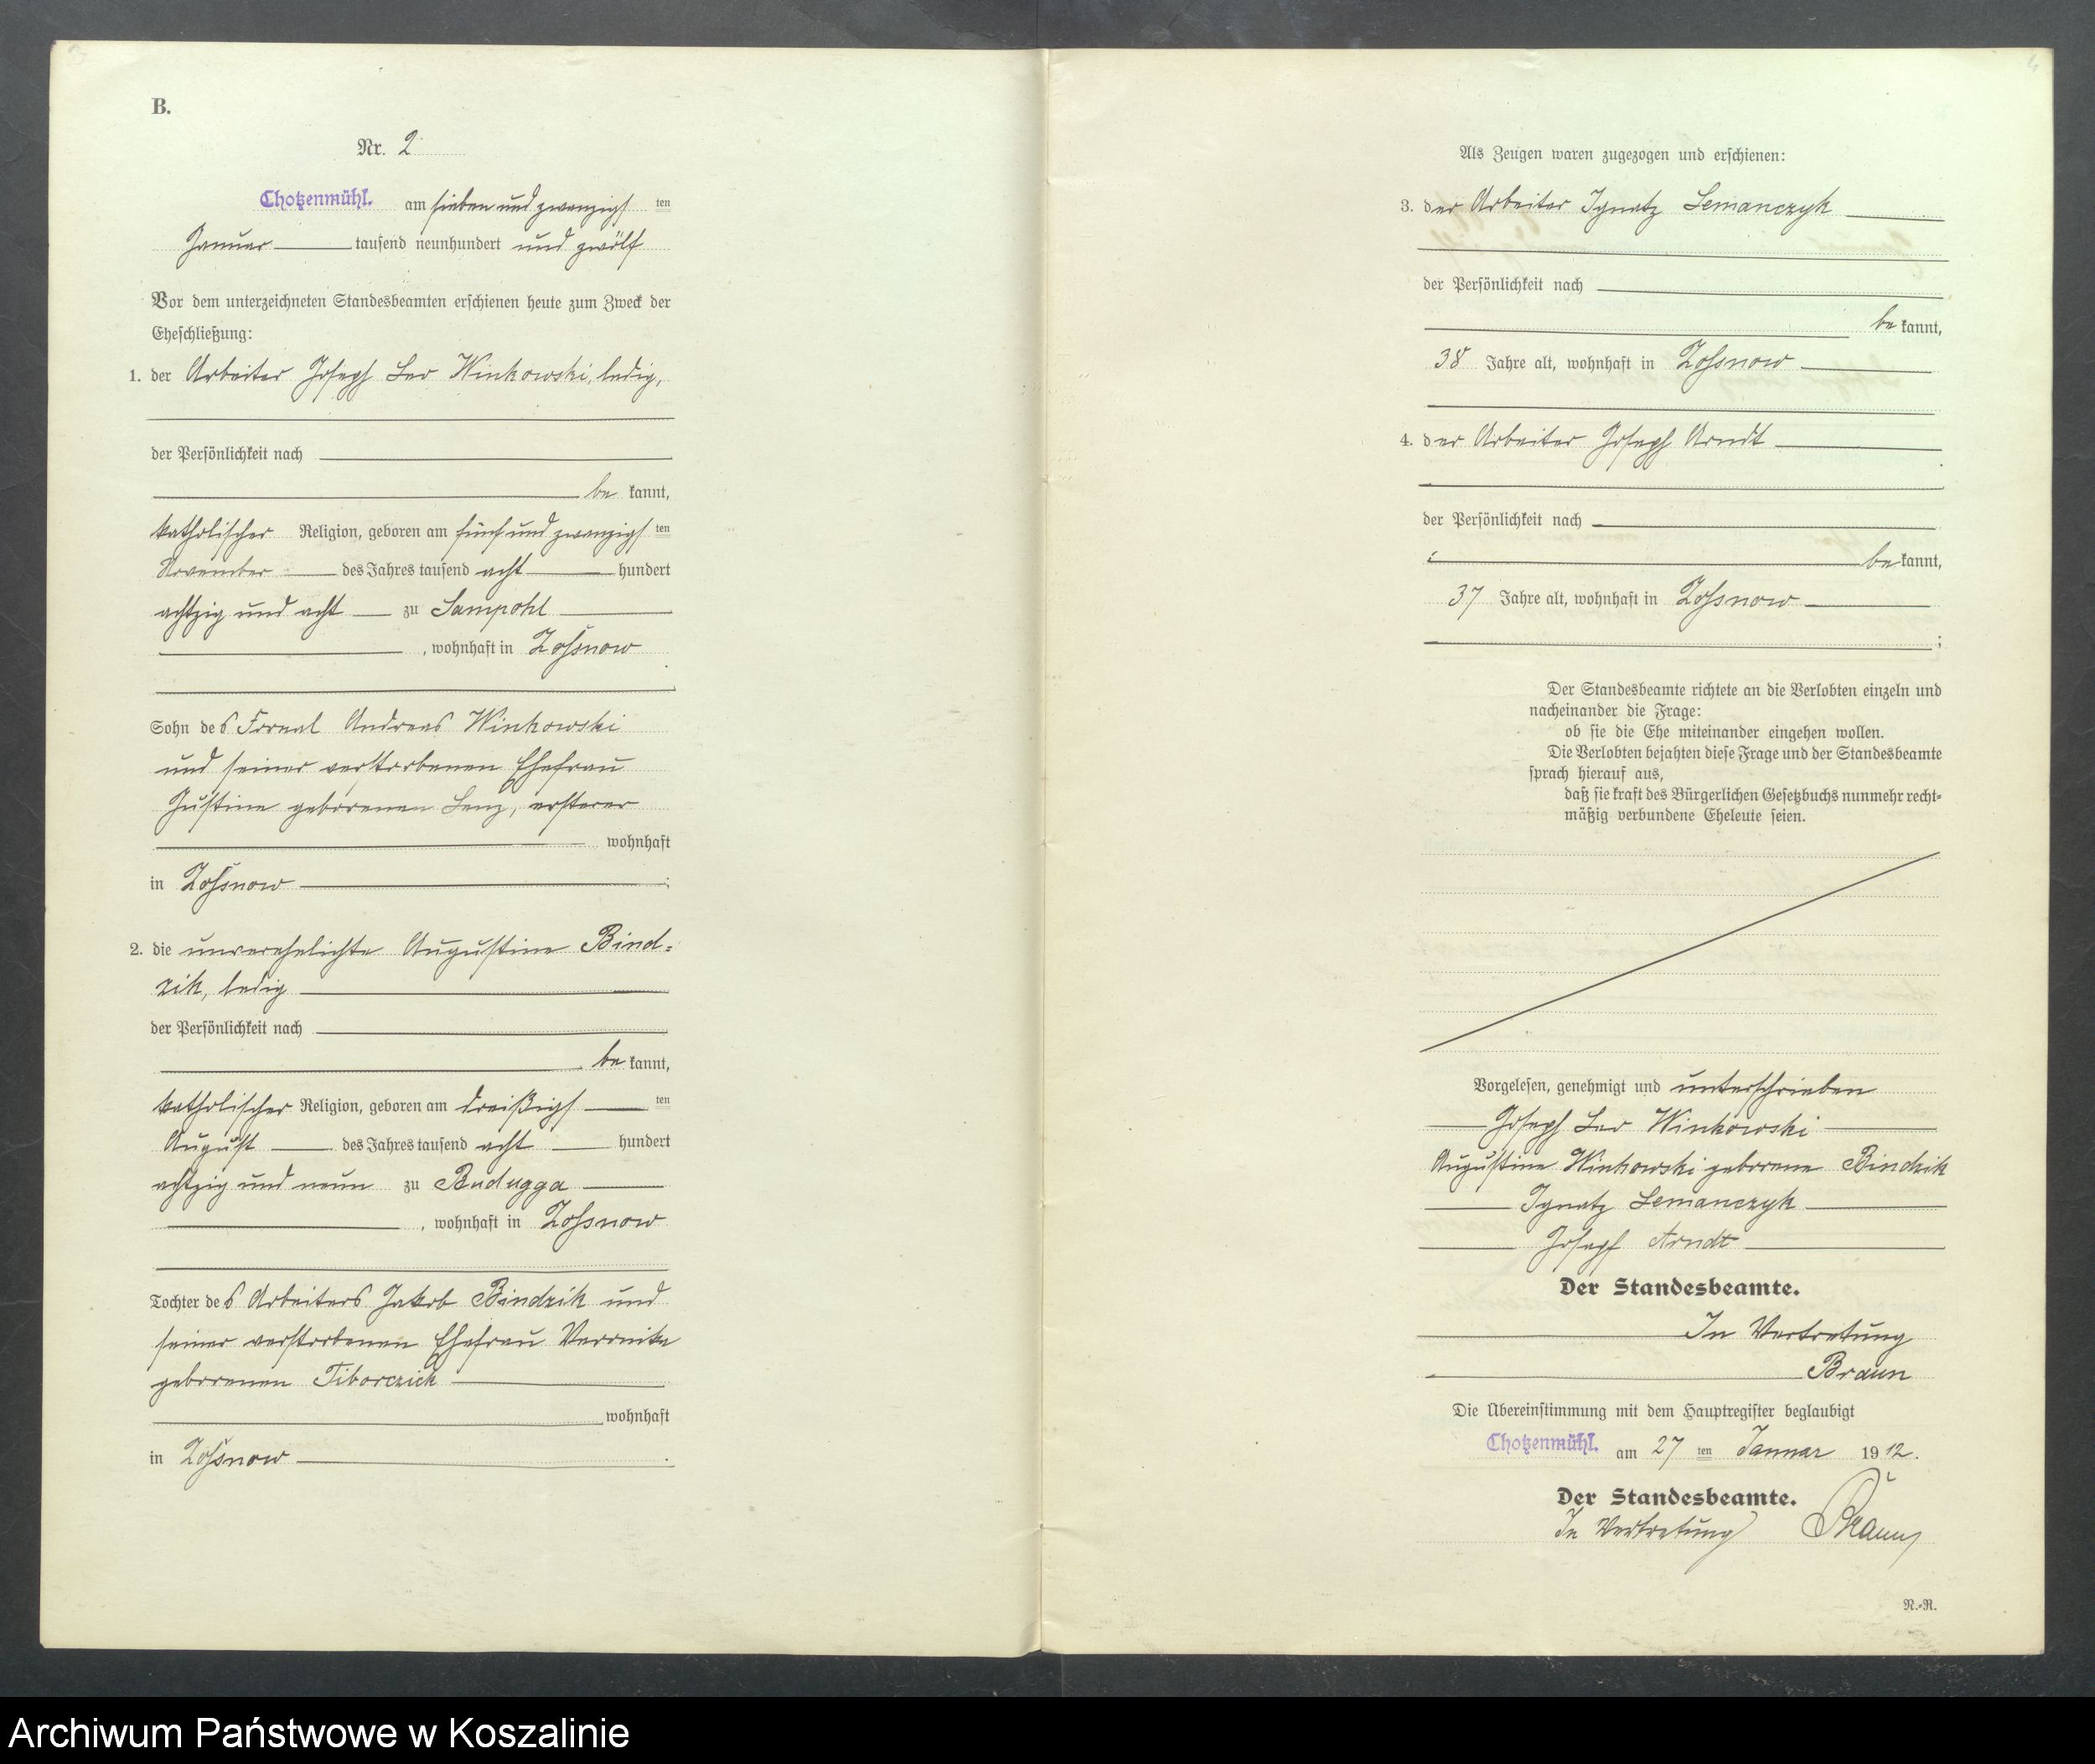 B.
Nr. 2
Chotzenmühl. am sieben und zwanzigs ten
Januar tausend neunhundert und zwölf
Vor dem unterzeichneten Standesbeamten erschienen heute zum Zweck der
Eheschließung:
1. der Arbeiter Joseph Leo Winkowski, ledig,
der Persönlichkeit nach
be kannt,
katholischer Religion, geboren am fünf und zwanzigs ten
November des Jahres tausend acht hundert
achtzig und acht zu Sampohl
, wohnhaft in Zossnow
Sohn des Fornal Andreas Winkowski
und seiner verstorbenen Ehefrau
Justine geborenen Lenz, ersterer
wohnhaft
in Zossnow ;
2. die unverehelichte Augustine Bind=
zik, ledig
der Persönlichkeit nach
be kannt,
katholischer Religion, geboren am dreißigs ten
August des Jahres tausend acht hundert
achtzig und neun zu
, wohnhaft in Zossnow
Tochter des Arbeiters Jakob Bindzik und
seiner verstorbenen Ehefrau Veronika
geborenen Tiborczick
wohnhaft
in Zossnow .
Als Zeugen waren zugezogen und erschienen:
3. der Arbeiter Ignatz Lemanczyk
der Persönlichkeit nach
be kannt,
38 Jahre alt, wohnhaft in Zossnow
4. der Arbeiter Joseph Arndt
der Persönlichkeit nach
be kannt,
37 Jahre alt, wohnhaft in Zossnow
;
Der Standesbeamte richtete an die Verlobten einzeln und
nacheinander die Frage:
ob sie die Ehe miteinander eingehen wollen.
Die Verlobten bejahten diese Frage und der Standesbeamte
sprach hierauf aus,
daß sie kraft des Bürgerlichen Gesetzbuchs nunmehr recht=
mäßig verbundene Eheleute seien.
Vorgelesen, genehmigt und unterschrieben
Joseph Leo Winkowski
Augustine Winkowski geborene Bindzik
Ignatz Lemanczyk
Joseph Arndt
Der Standesbeamte.
In Vertretung
Braun
Die Übereinstimmung mit dem Hauptregister beglaubigt
Chotzenmühl. am 27 ten Januar 1912.
Der Standesbeamte.
In Vertretung Braun
N.=R.
Archiwum Państwowe w Koszalinie